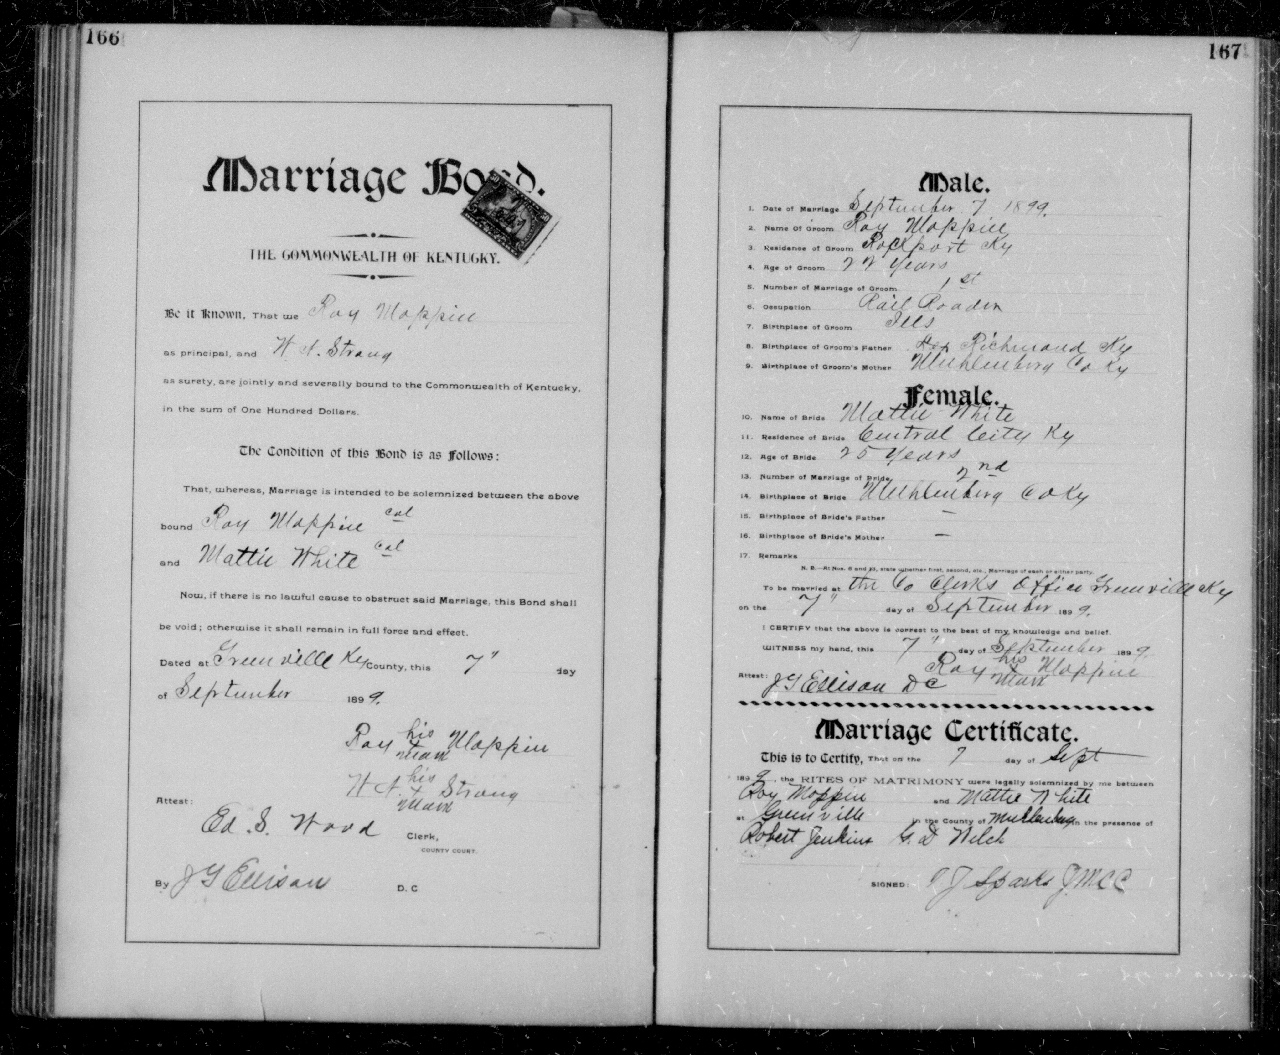 166
Marriage Bond.
THE COMMONWEALTH OF KENTUCKY.
Be it Known, That we Roy Moppin
as principal, and W N. Strong
as surety, are jointly and severally bound to the Commonwealth of Kentucky,
in the sum of One Hundred Dollars.
The Condition of this Bond is as Follows:
That, whereas, Marriage is intended to be solemnized between the above
bound Roy Moppin col
and Mattie White col
Now, if there is no lawful cause to obstruct said Marriage, this Bond shall
be void; otherwise it shall remain in full force and effect.
Dated at Greenville Ky County, this 7" day
of September 1899.
Roy his Moppin
mark
W N. his Strong
x
mark
Attest:
Ed. S. Wood Clerk,
COUNTY COURT.
By J G Ellison D. C
167
Male.
1. Date of Marriage September 7 1899.
2. Name Of Groom Roy Moppin
3. Residence of Groom Rockport Ky
4. Age of Groom 22 Years
5. Number of Marriage of Groom 1st
6. Occupation Rail Roader
7. Birthplace of Groom Ills
8. Birthplace of Groom's Father Richmond Ky
9. Birthplace of Groom's Mother Muhlenberg Co Ky
Female.
10. Name of Bride Mattie White
11. Residence of Bride Central City Ky
12. Age of Bride 25 Years
13. Number of Marriage of Bride 2nd
14. Birthplace of Bride Muhlenberg Co Ky
15. Birthplace of Bride's Father –
16. Birthplace of Bride's Mother –
17. Remarks
N. B.—At Nos. 5 and 13, state whether first, second, etc., Marriage of each or either party.
To be married at the Co Clerks Office Greenville Ky
on the 7" day of September 1899.
I CERTIFY that the above is correct to the best of my knowledge and belief.
WITNESS my hand, this 7" day of September 1899.
Roy his x mark Moppin
Attest: J G Ellison D C
Marriage Certificate.
This is to Certify, That on the 7 day of Sept
1899, the RITES OF MATRIMONY were legally solemnized by me between
Roy Moppin and Mattie White
at Greenville in the County of Muhlenberg in the presence of
Robert Jenkins G. D Welch
SIGNED: J Sparks J.M.C.C